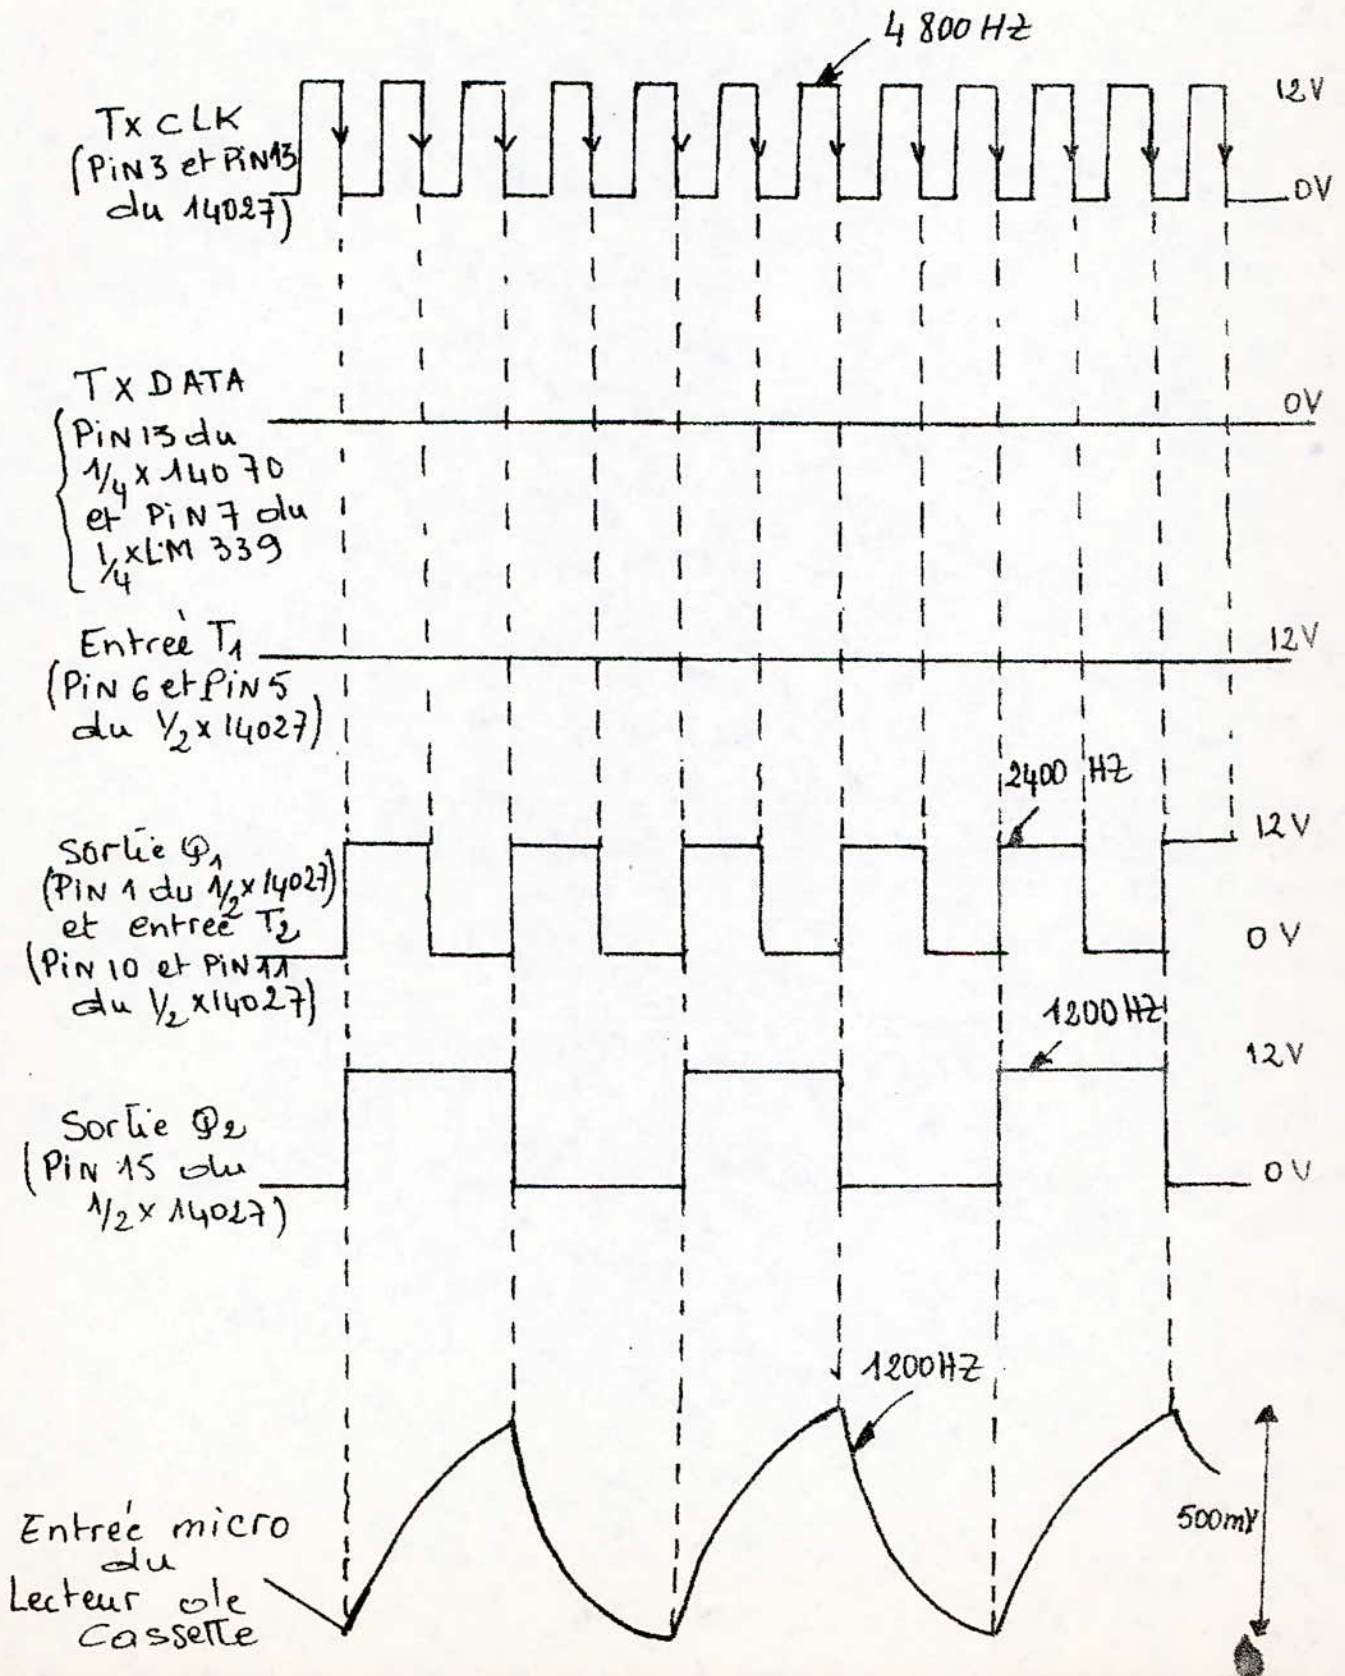 4 800 HZ
Tx CLK
(PiN 3 et PiN 13
du 14027)
12V
0V
Tx DATA
PiN 13 du
1/4 x 14070
et PiN 7 du
1/4 x LM 339
0V
Entrée T1
(PiN 6 et PiN 5
du 1/2 x 14027)
12V
2400 HZ
Sortie Q1
(PiN 1 du 1/2 x 14027)
et entrée T2
(PiN 10 et PiN 11
du 1/2 x 14027)
12V
0V
1200 HZ
Sortie Q2
(PiN 15 du
1/2 x 14027)
12V
0V
1200 HZ
Entrée micro
du
Lecteur de
Cassette
500mV